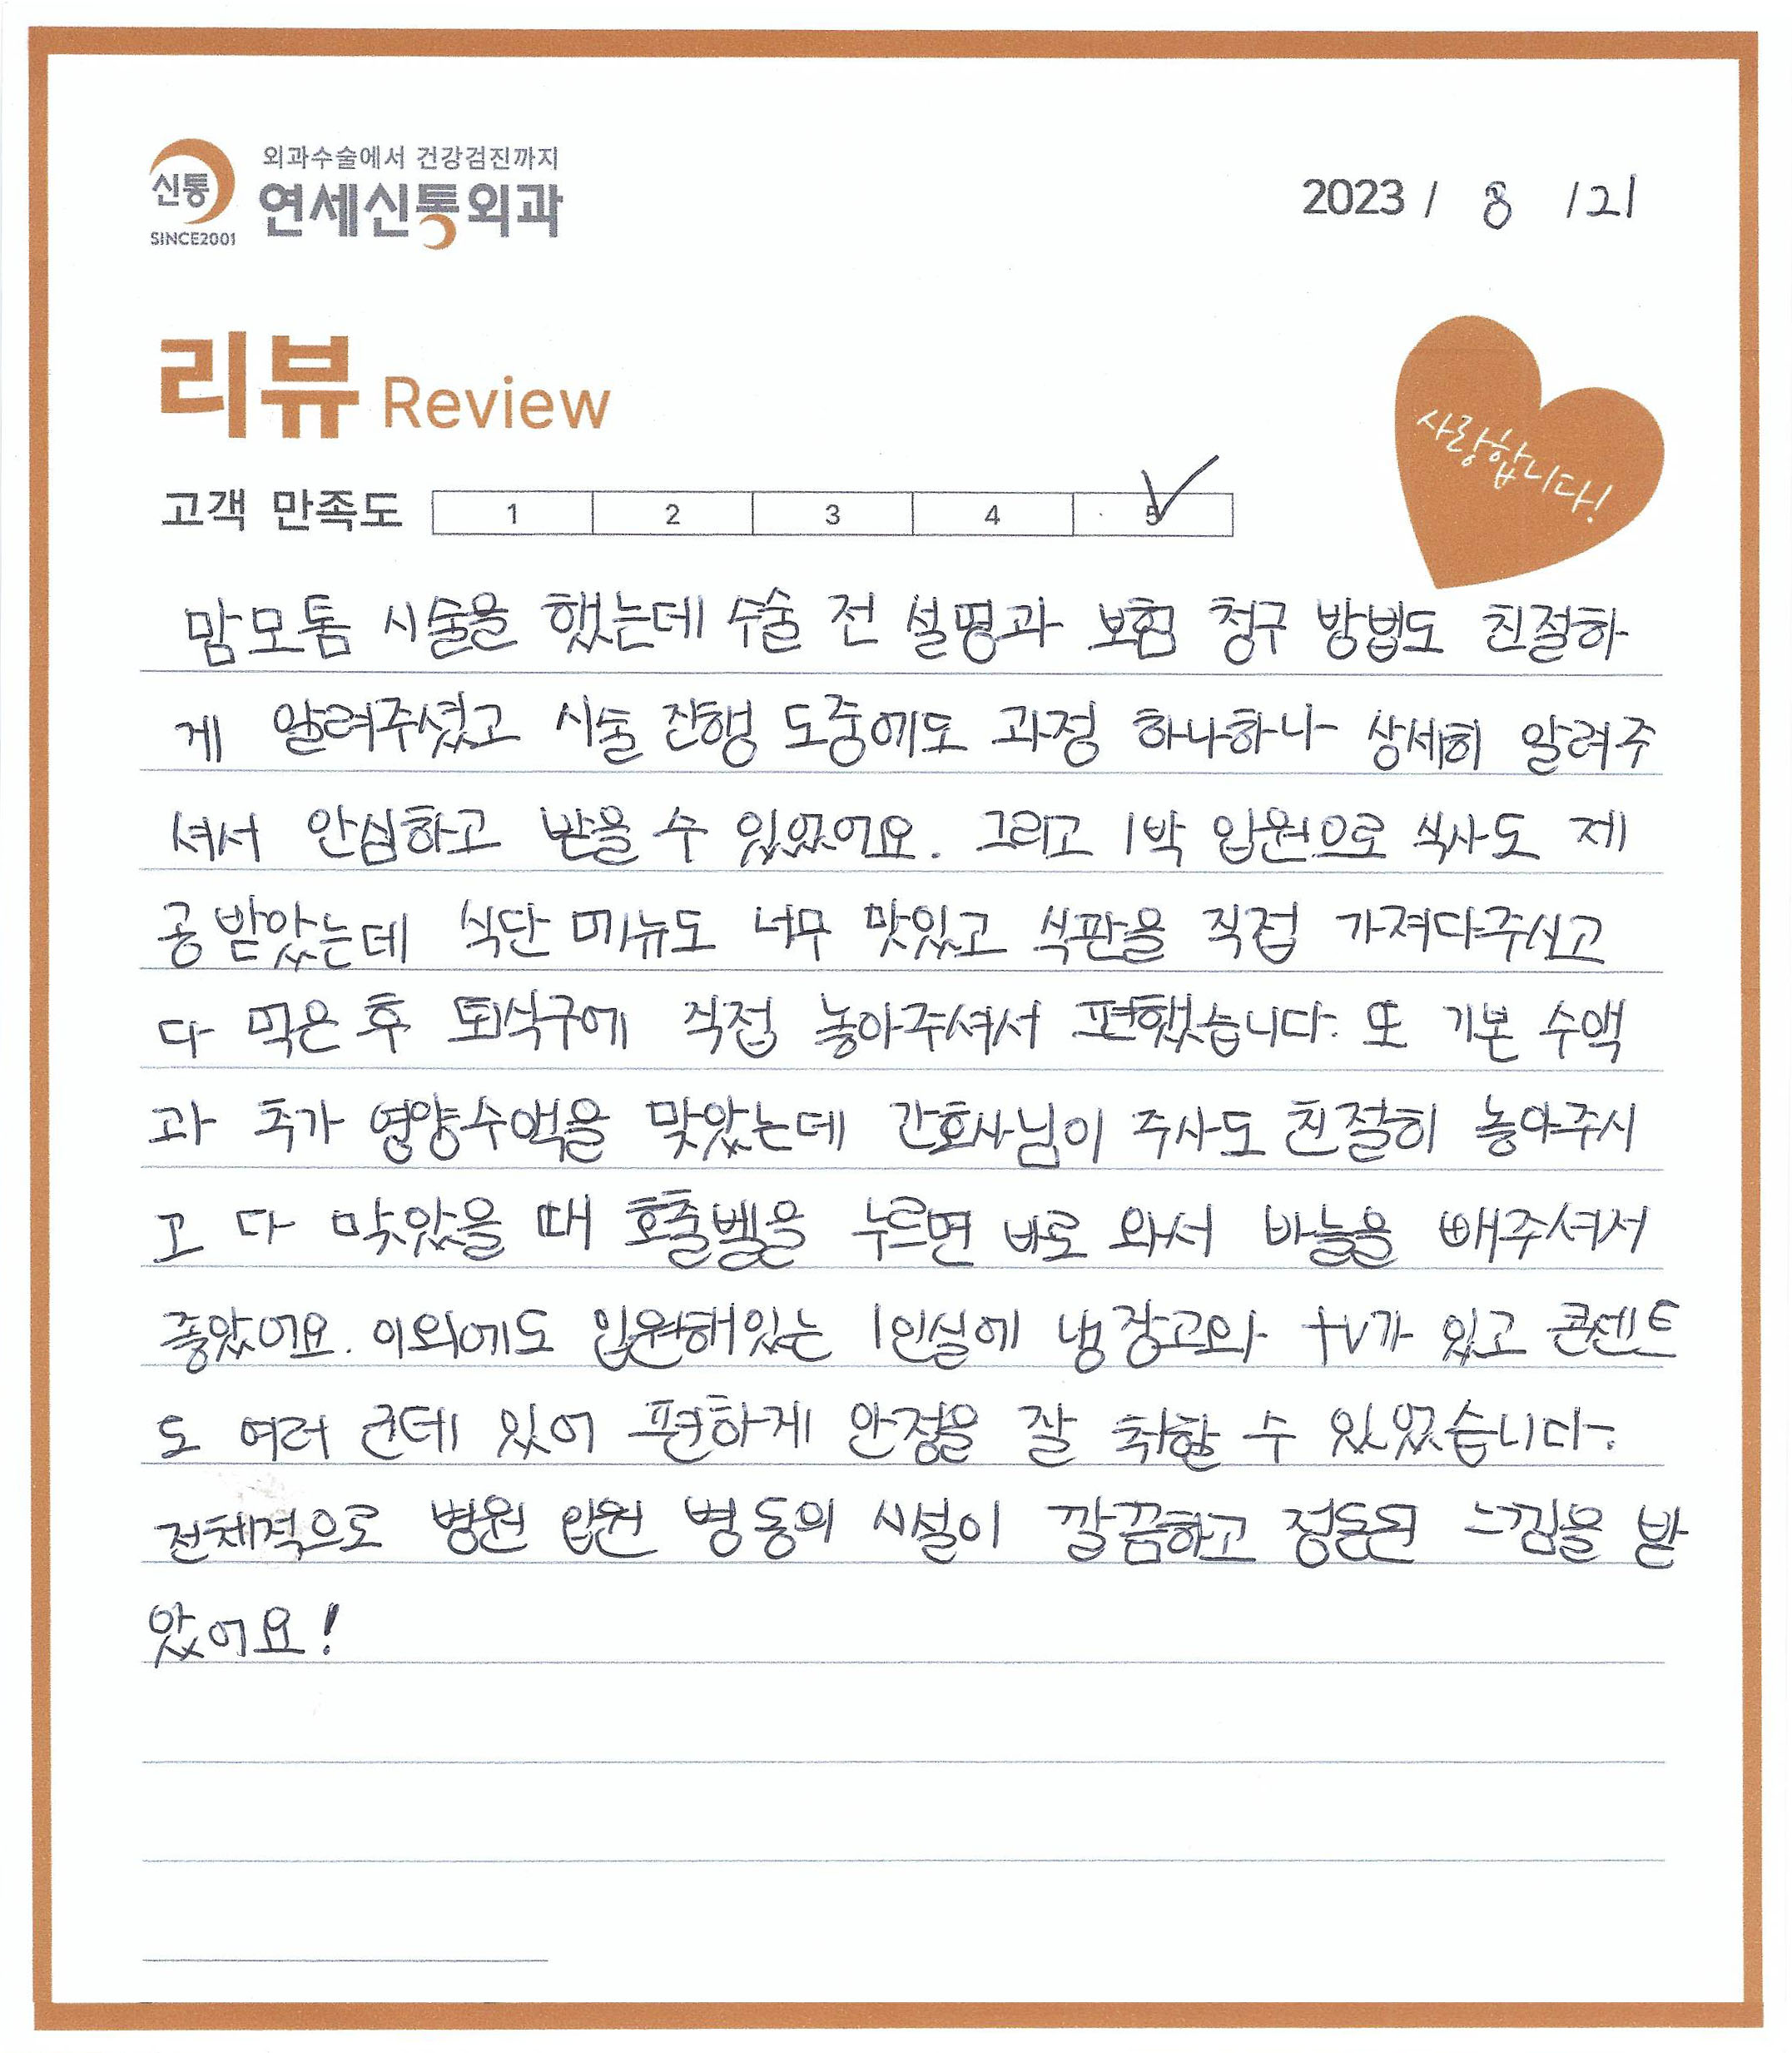 외과수술에서 건강검진까지
신통 연세신통외과
SINCE2001
2023 / 8 / 21
리뷰 Review
사랑합니다!
고객 만족도 1 2 3 4 5
맘모톰 시술을 했는데 수술 전 설명과 보험 청구 방법도 친절하
게 알려주셨고 시술 진행 도중에도 과정 하나하나 상세히 알려주
셔서 안심하고 받을 수 있었어요. 그리고 1박 입원으로 식사도 제
공 받았는데 식단 메뉴도 너무 맛있고 식판을 직접 가져다주시고
다 먹은 후 퇴식구에 직접 놓아주셔서 편했습니다. 또 기본 수액
과 추가 영양수액을 맞았는데 간호사님이 주사도 친절히 놓아주시
고 다 맞았을 때 호출벨을 누르면 바로 와서 바늘을 빼주셔서
좋았어요. 이외에도 입원해있는 1인실에 냉장고와 tv가 있고 콘센트
도 여러 군데 있어 편하게 안정을 잘 취할 수 있었습니다.
전체적으로 병원 입원 병동의 시설이 깔끔하고 정돈된 느낌을 받
았어요!